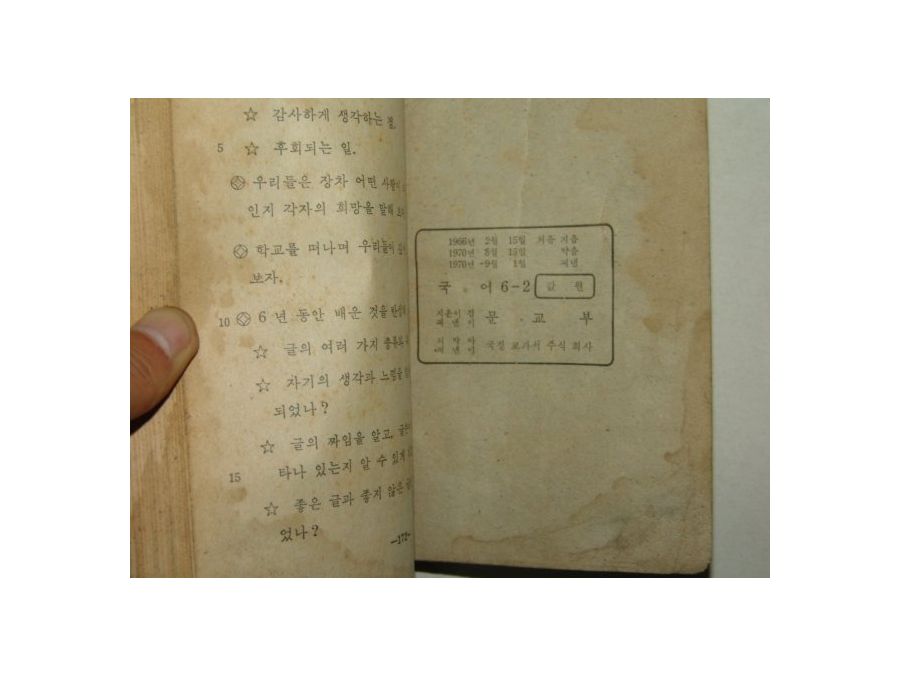 ☆ 감사하게 생각하는 점.
5 ☆ 후회되는 일.
우리들은 장차 어떤 사람이
인지 각자의 희망을 말해
학교를 떠나며 우리들이
보자.
10 6 년 동안 배운 것을
☆ 글의 여러 가지 종류를
☆ 자기의 생각과 느낌을
되었나?
☆ 글의 짜임을 알고,
15 타나 있는지 알 수 있게
☆ 좋은 글과 좋지 않은
었나?
—172—
1966년 2월 15일 처음 지음
1970년 8월 15일 박음
1970년 9월 1일 펴냄
국 어 6-2 값 원
지은이 겸
펴낸이 문 교 부
국정 교과서 주식 회사